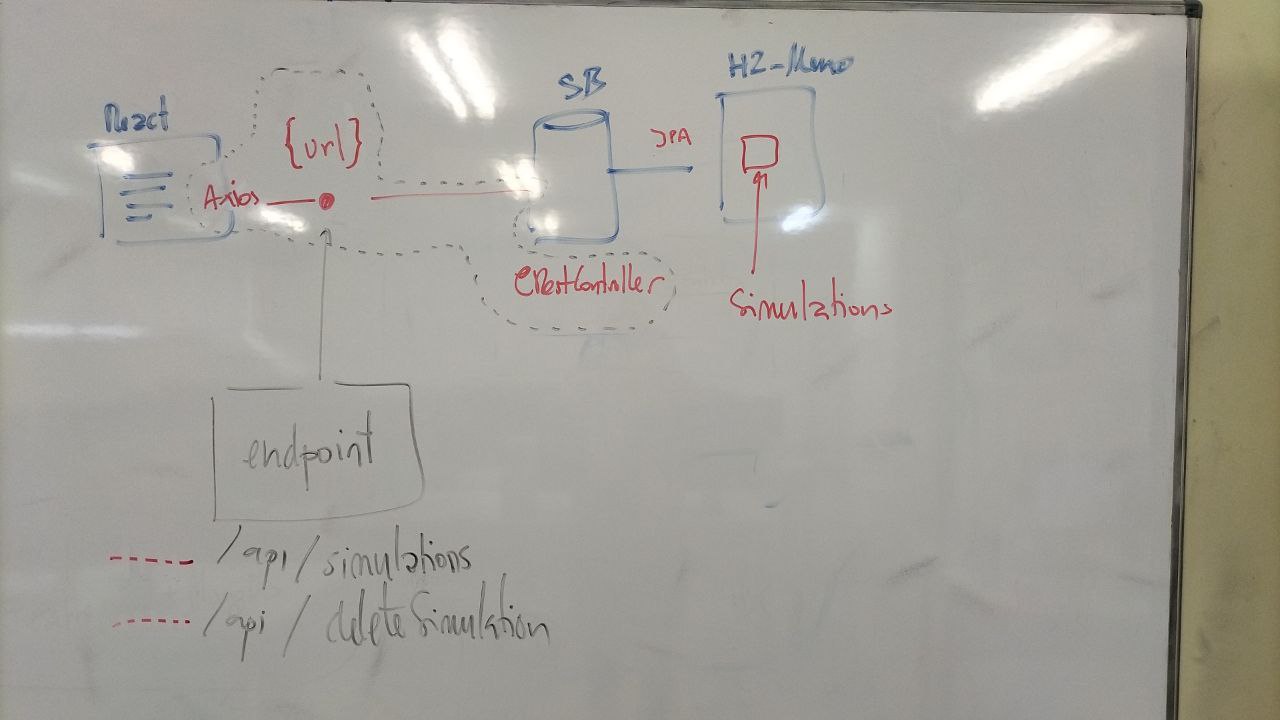 React
{url}
Axios
SB
JPA
H2-Memo
@RestController
Simulations
endpoint
/api/simulations
/api/deleteSimulation